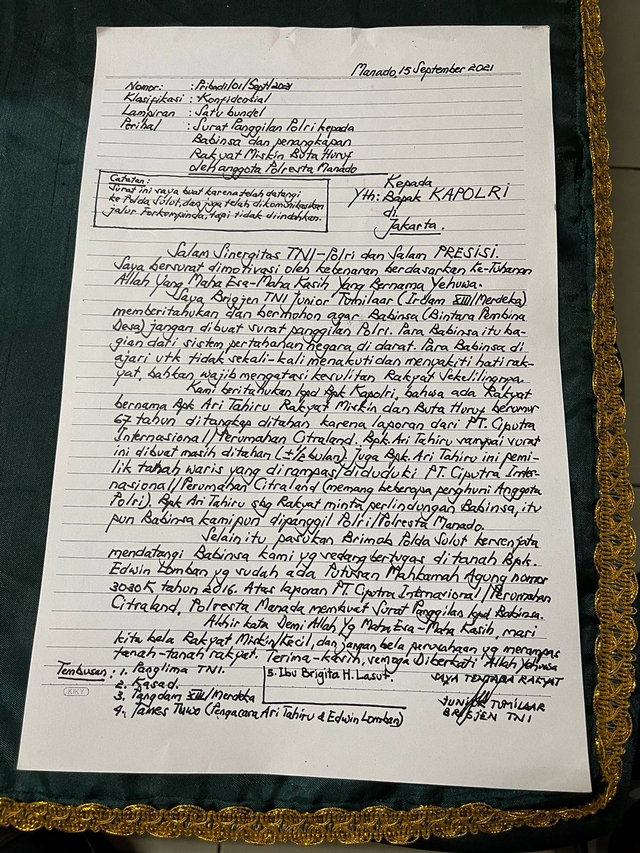 Manado, 15 September 2021
Nomor : Pribadi/01/Sept/2021
Klasifikasi : Konfidential
Lampiran : Satu bundel
Perihal : Surat Panggilan Polri kepada
Babinsa dan penangkapan
Rakyat Miskin Buta Huruf
oleh anggota Polresta Manado
Catatan:
Surat ini saya buat karena telah datangi
ke Polda Sulut, dan juga telah dikomunikasikan
jalur Forkopimda, tapi tidak diindahkan.
Kepada
Yth: Bapak KAPOLRI
di
Jakarta.
Salam Sinergitas TNI-Polri dan Salam PRESISI.
Saya bersurat dimotivasi oleh kebenaran berdasarkan Ke-Tuhanan
Allah Yang Maha Esa-Maha Kasih Yang Bernama Yehuwa.
Saya Brigjen TNI Junior Tumilaar (Irdam XIII/Merdeka)
memberitahukan dan bermohon agar Babinsa (Bintara Pembina
Desa) jangan dibuat surat panggilan Polri. Para Babinsa itu ba-
gian dari sistem pertahanan negara di darat. Para Babinsa di
ajari utk tidak sekali-kali menakuti dan menyakiti hati rak-
yat, bahkan wajib mengatasi kesulitan Rakyat Sekelilingnya.
Kami beritahukan kpd Bpk Kapolri, bahwa ada Rakyat
bernama Bpk Ari Tahiru Rakyat Miskin dan Buta Huruf berumur
67 tahun ditangkap ditahan karena laporan dari PT. Ciputra
Internasional/Perumahan Citraland. Bpk Ari Tahiru sampai surat
ini dibuat masih ditahan (±½ bulan). Juga Bpk Ari Tahiru ini pemi-
lik tanah waris yang dirampas/diduduki PT. Ciputra Inter-
nasional/Perumahan Citraland (memang beberapa penghuni Anggota
Polri). Bpk Ari Tahiru sbg Rakyat minta perlindungan Babinsa, itu
pun Babinsa kamipun dipanggil Polri/Polresta Manado.
Selain itu pasukan Brimob Polda Sulut bersenjata
mendatangi Babinsa kami yg sedang bertugas di tanah Bpk.
Edwin Lomban yg sudah ada Putusan Mahkamah Agung nomor
3030K tahun 2016. Atas laporan PT. Ciputra Internasional/Perumahan
Citraland, Polresta Manado membuat Surat Panggilan kpd Babinsa.
Akhir kata Demi Allah Yg Maha Esa-Maha Kasih, mari
kita bela Rakyat Miskin/Kecil, dan jangan bela perusahaan yg merampas
tanah-tanah rakyat. Terima-kasih, semoga Diberkati Allah Yehuwa
Tembusan: 1. Panglima TNI.
2. Kasad.
3. Pangdam XIII/Merdeka
4. James Tuwo (Pengacara Ari Tahiru & Edwin Lomban)
5. Ibu Brigita H. Lasut.
SAYA TENTARA RAKYAT
JUNIOR TUMILAAR
BRIGJEN TNI
KIKY